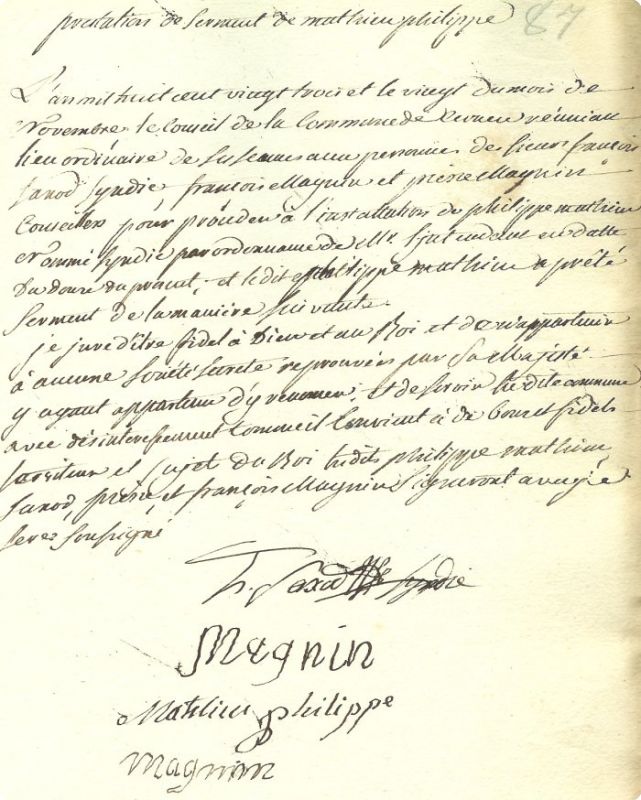 prestation de Serment de mathieu philippe 87
L'an mil huit cent vingt trois et le vingt du mois de
Novembre, le Conseil de la Commune de réuni au
lieu ordinaire de Ses aux personnes de Sieurs françois
Sanod Syndic, françois Magnin et Magnin
Conseillers pour à l'installation de philippe mathieu
Nommé Syndic par ordonnance de Mr. l'jntendent en datte
Du douze du et ledit philippe mathieu a prêté
Serment de la manière Suivante.
je jure d'être fidel à Dieu et au Roi et de n'appartenir
à aucune Société Secrete reprouvée par Sa Majesté
y ayant appartenu d'y renoncer, Et de Servir la dite commune
avec désinteressement Comme il Convient à de bon et fidels
Serviteur et Sujet du Roi philippe mathieu
Sanod, et françois Magnin Signeront avec je
Sousigné
Syndic
Magnin
Mathieu philippe
magnin